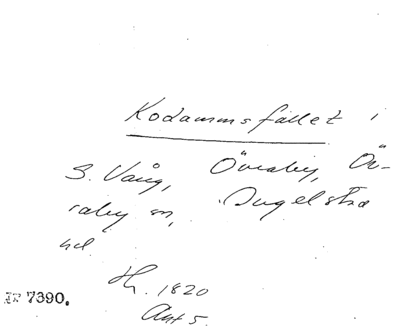 Kodammsfället i
3. Vång, Övraby, Öv-
raby sn, Ingelstad
hd.
Hg. 1820
Akt 5.
7390.